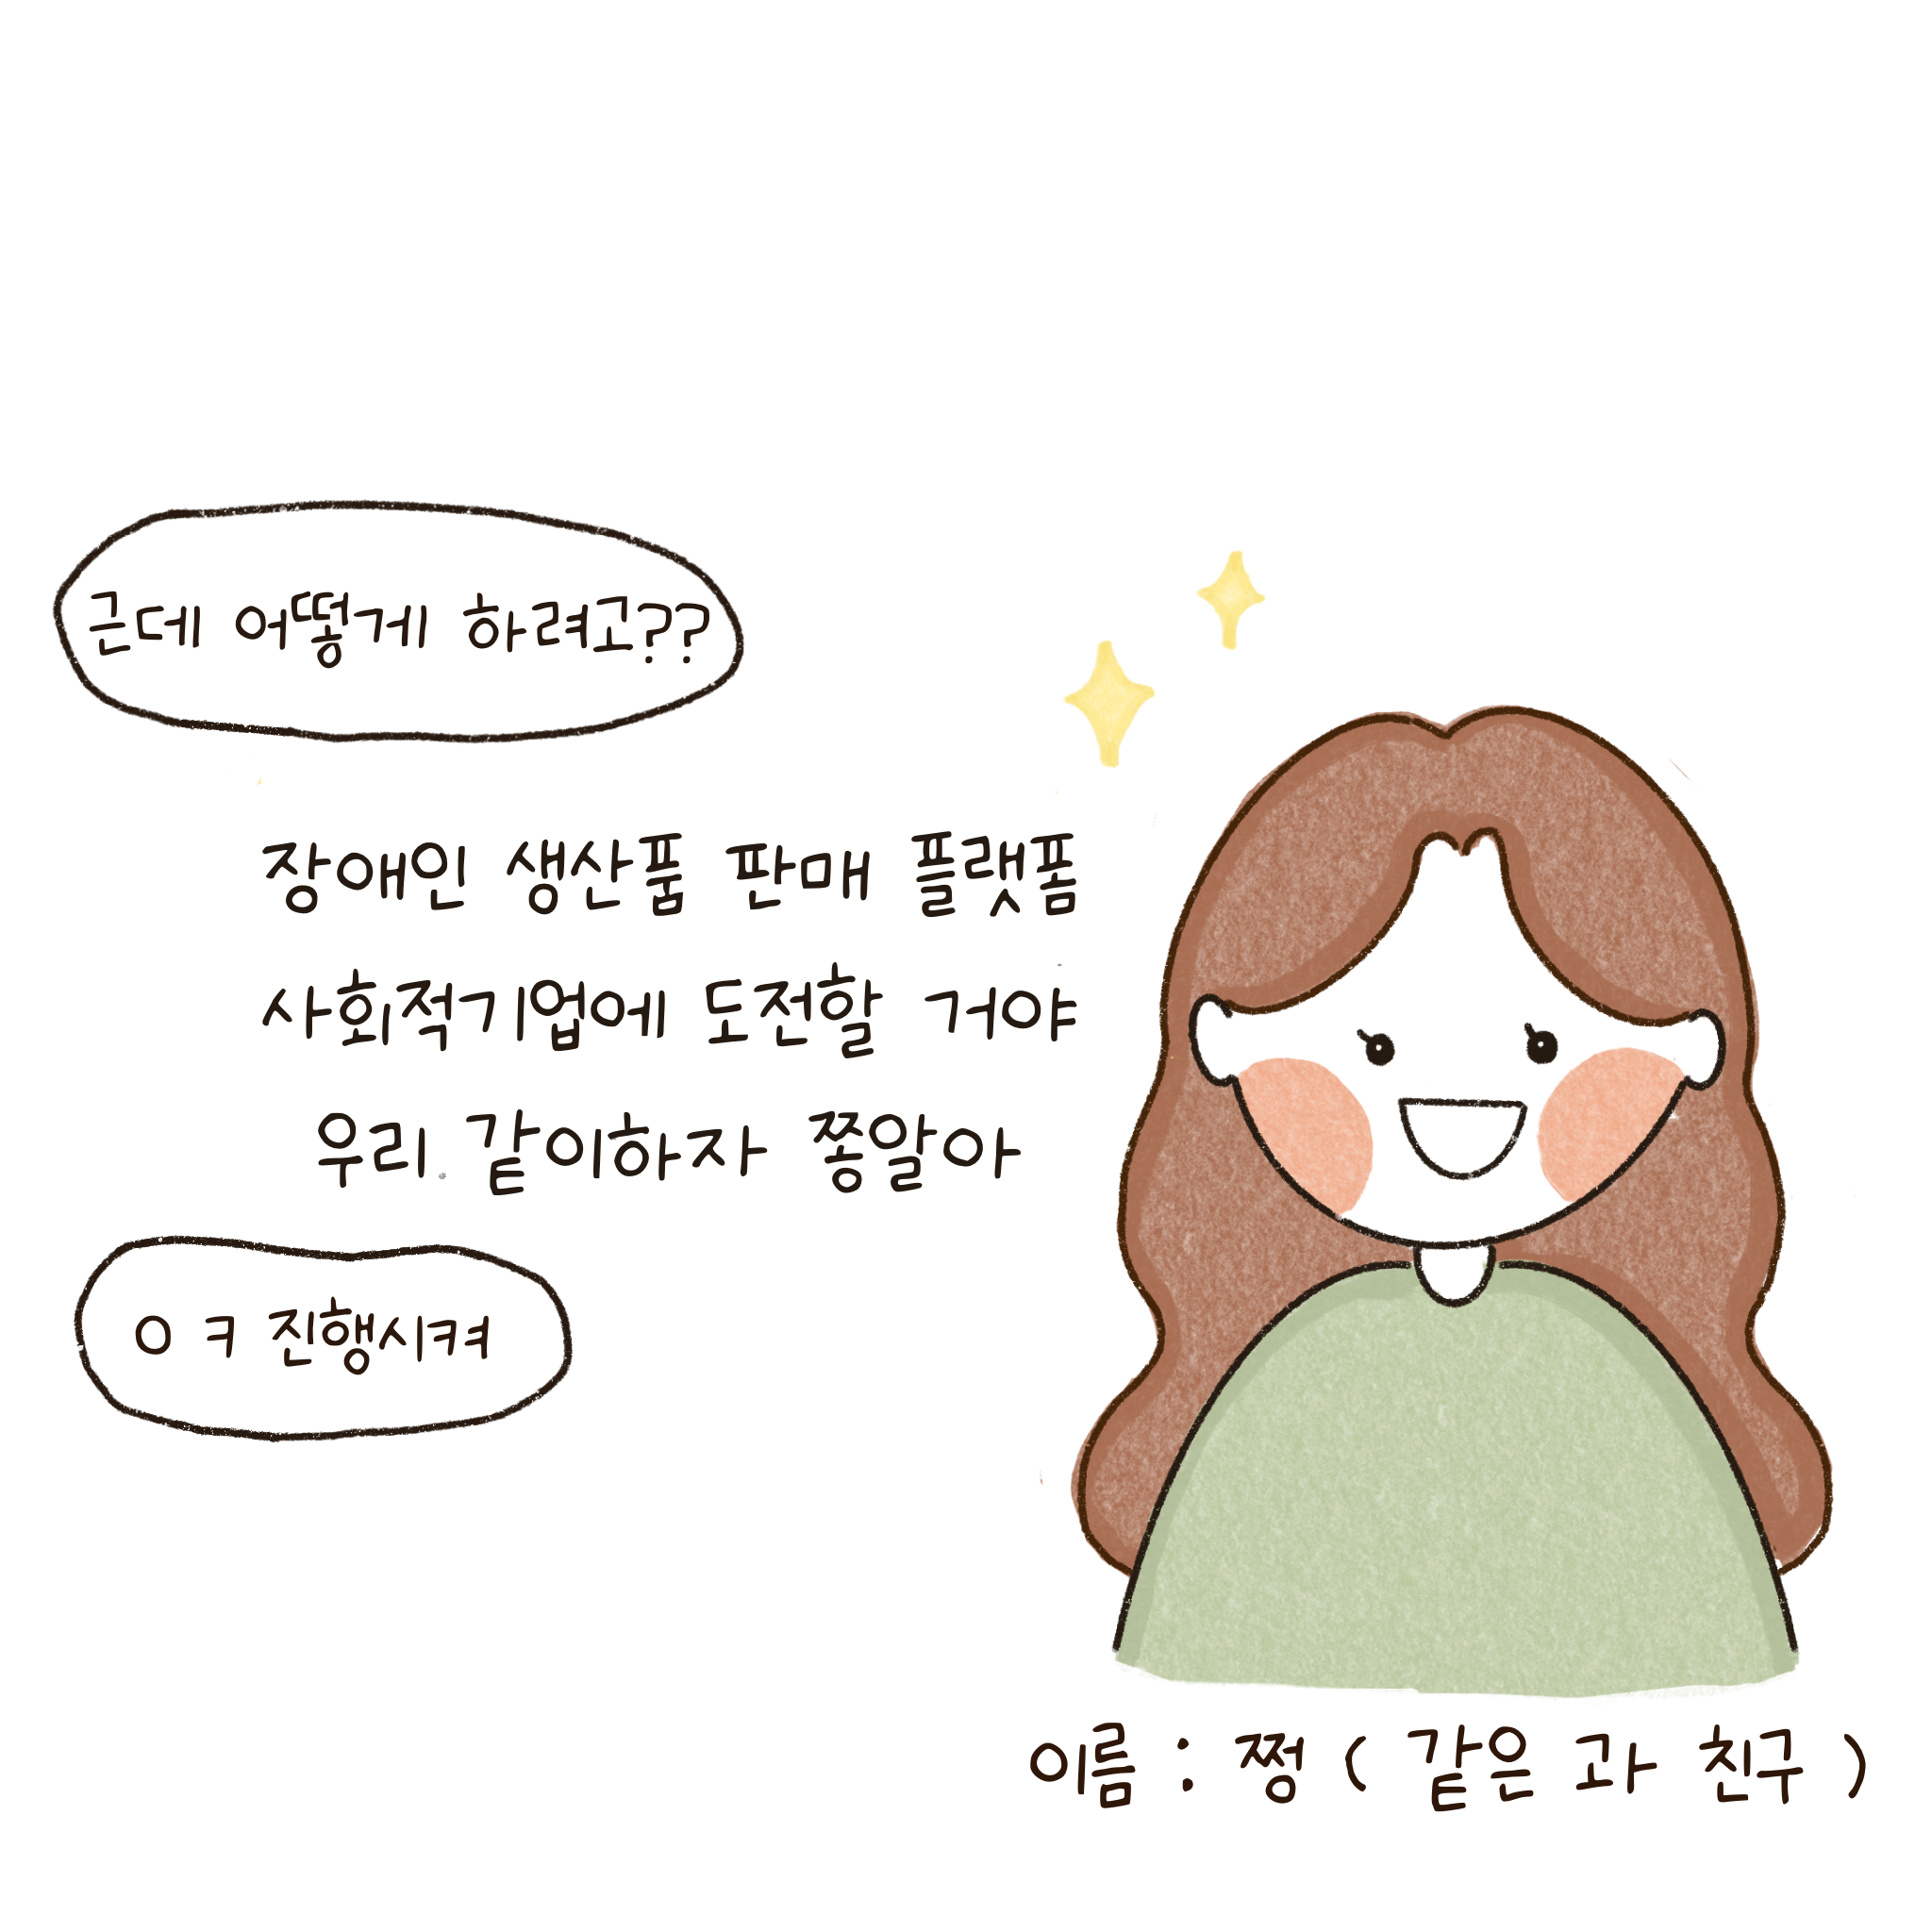 근데 어떻게 하려고??
장애인 생산품 판매 플랫폼
사회적기업에 도전할 거야
우리 같이하자 쫑알아
ㅇ ㅋ 진행시켜
이름 : 쩡 ( 같은 과 친구 )